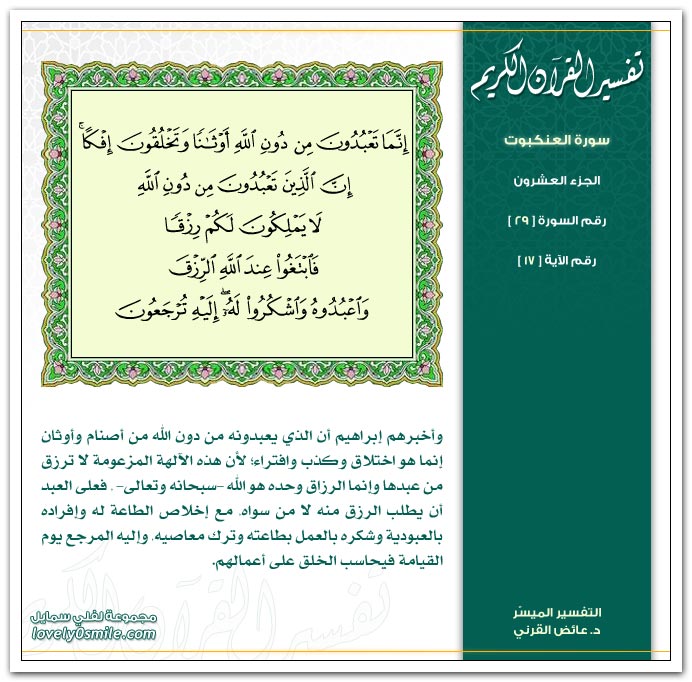 تفسير القرآن الكريم
سورة العنكبوت
الجزء العشرون
رقم السورة [ ٢٩ ]
رقم الآية [ ١٧ ]
إِنَّمَا تَعْبُدُونَ مِن دُونِ ٱللَّهِ أَوْثَٰنًا وَتَخْلُقُونَ إِفْكًا ۚ
إِنَّ ٱلَّذِينَ تَعْبُدُونَ مِن دُونِ ٱللَّهِ
لَا يَمْلِكُونَ لَكُمْ رِزْقًا
فَٱبْتَغُوا۟ عِندَ ٱللَّهِ ٱلرِّزْقَ
وَٱعْبُدُوهُ وَٱشْكُرُوا۟ لَهُۥٓ ۖ إِلَيْهِ تُرْجَعُونَ
وأخبرهم إبراهيم أن الذي يعبدونه من دون الله من أصنام وأوثان
إنما هو اختلاق وكذب وافتراء؛ لأن هذه الآلهة المزعومة لا ترزق
من عبدها وإنما الرزاق وحده هو الله -سبحانه وتعالى- . فعلى العبد
أن يطلب الرزق منه لا من سواه. مع إخلاص الطاعة له وإفراده
بالعبودية وشكره بالعمل بطاعته وترك معاصيه. وإليه المرجع يوم
القيامة فيحاسب الخلق على أعمالهم.
التفسير الميسّر
د. عائض القرني
مجموعة لفلي سمايل
lovely0smile.com
تفسير القرآن الكريم